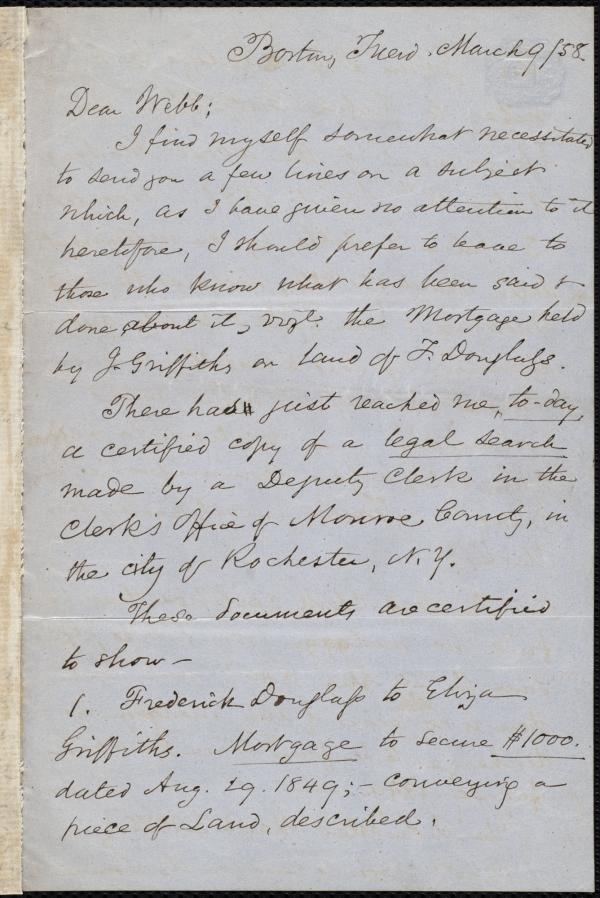 Boston, Tues. March 9/58.
Dear Webb;
I find myself somewhat necessitated
to send you a few lines on a subject
which, as I have given no attention to it
heretofore, I should prefer to leave to
those who know what has been said &
done about it, vizt. the Mortgage held
by J. Griffiths on land of F. Douglass.
There has just reached me, to-day,
a certified copy of a legal search
made by a Deputy Clerk in the
Clerk's Office of Monroe County, in
the city of Rochester, N.Y.
These documents are certified
to show —
1. Frederick Douglass to Eliza
Griffiths. Mortgage to secure $1000.
dated Aug. 29. 1849; — conveying a
piece of Land, described.